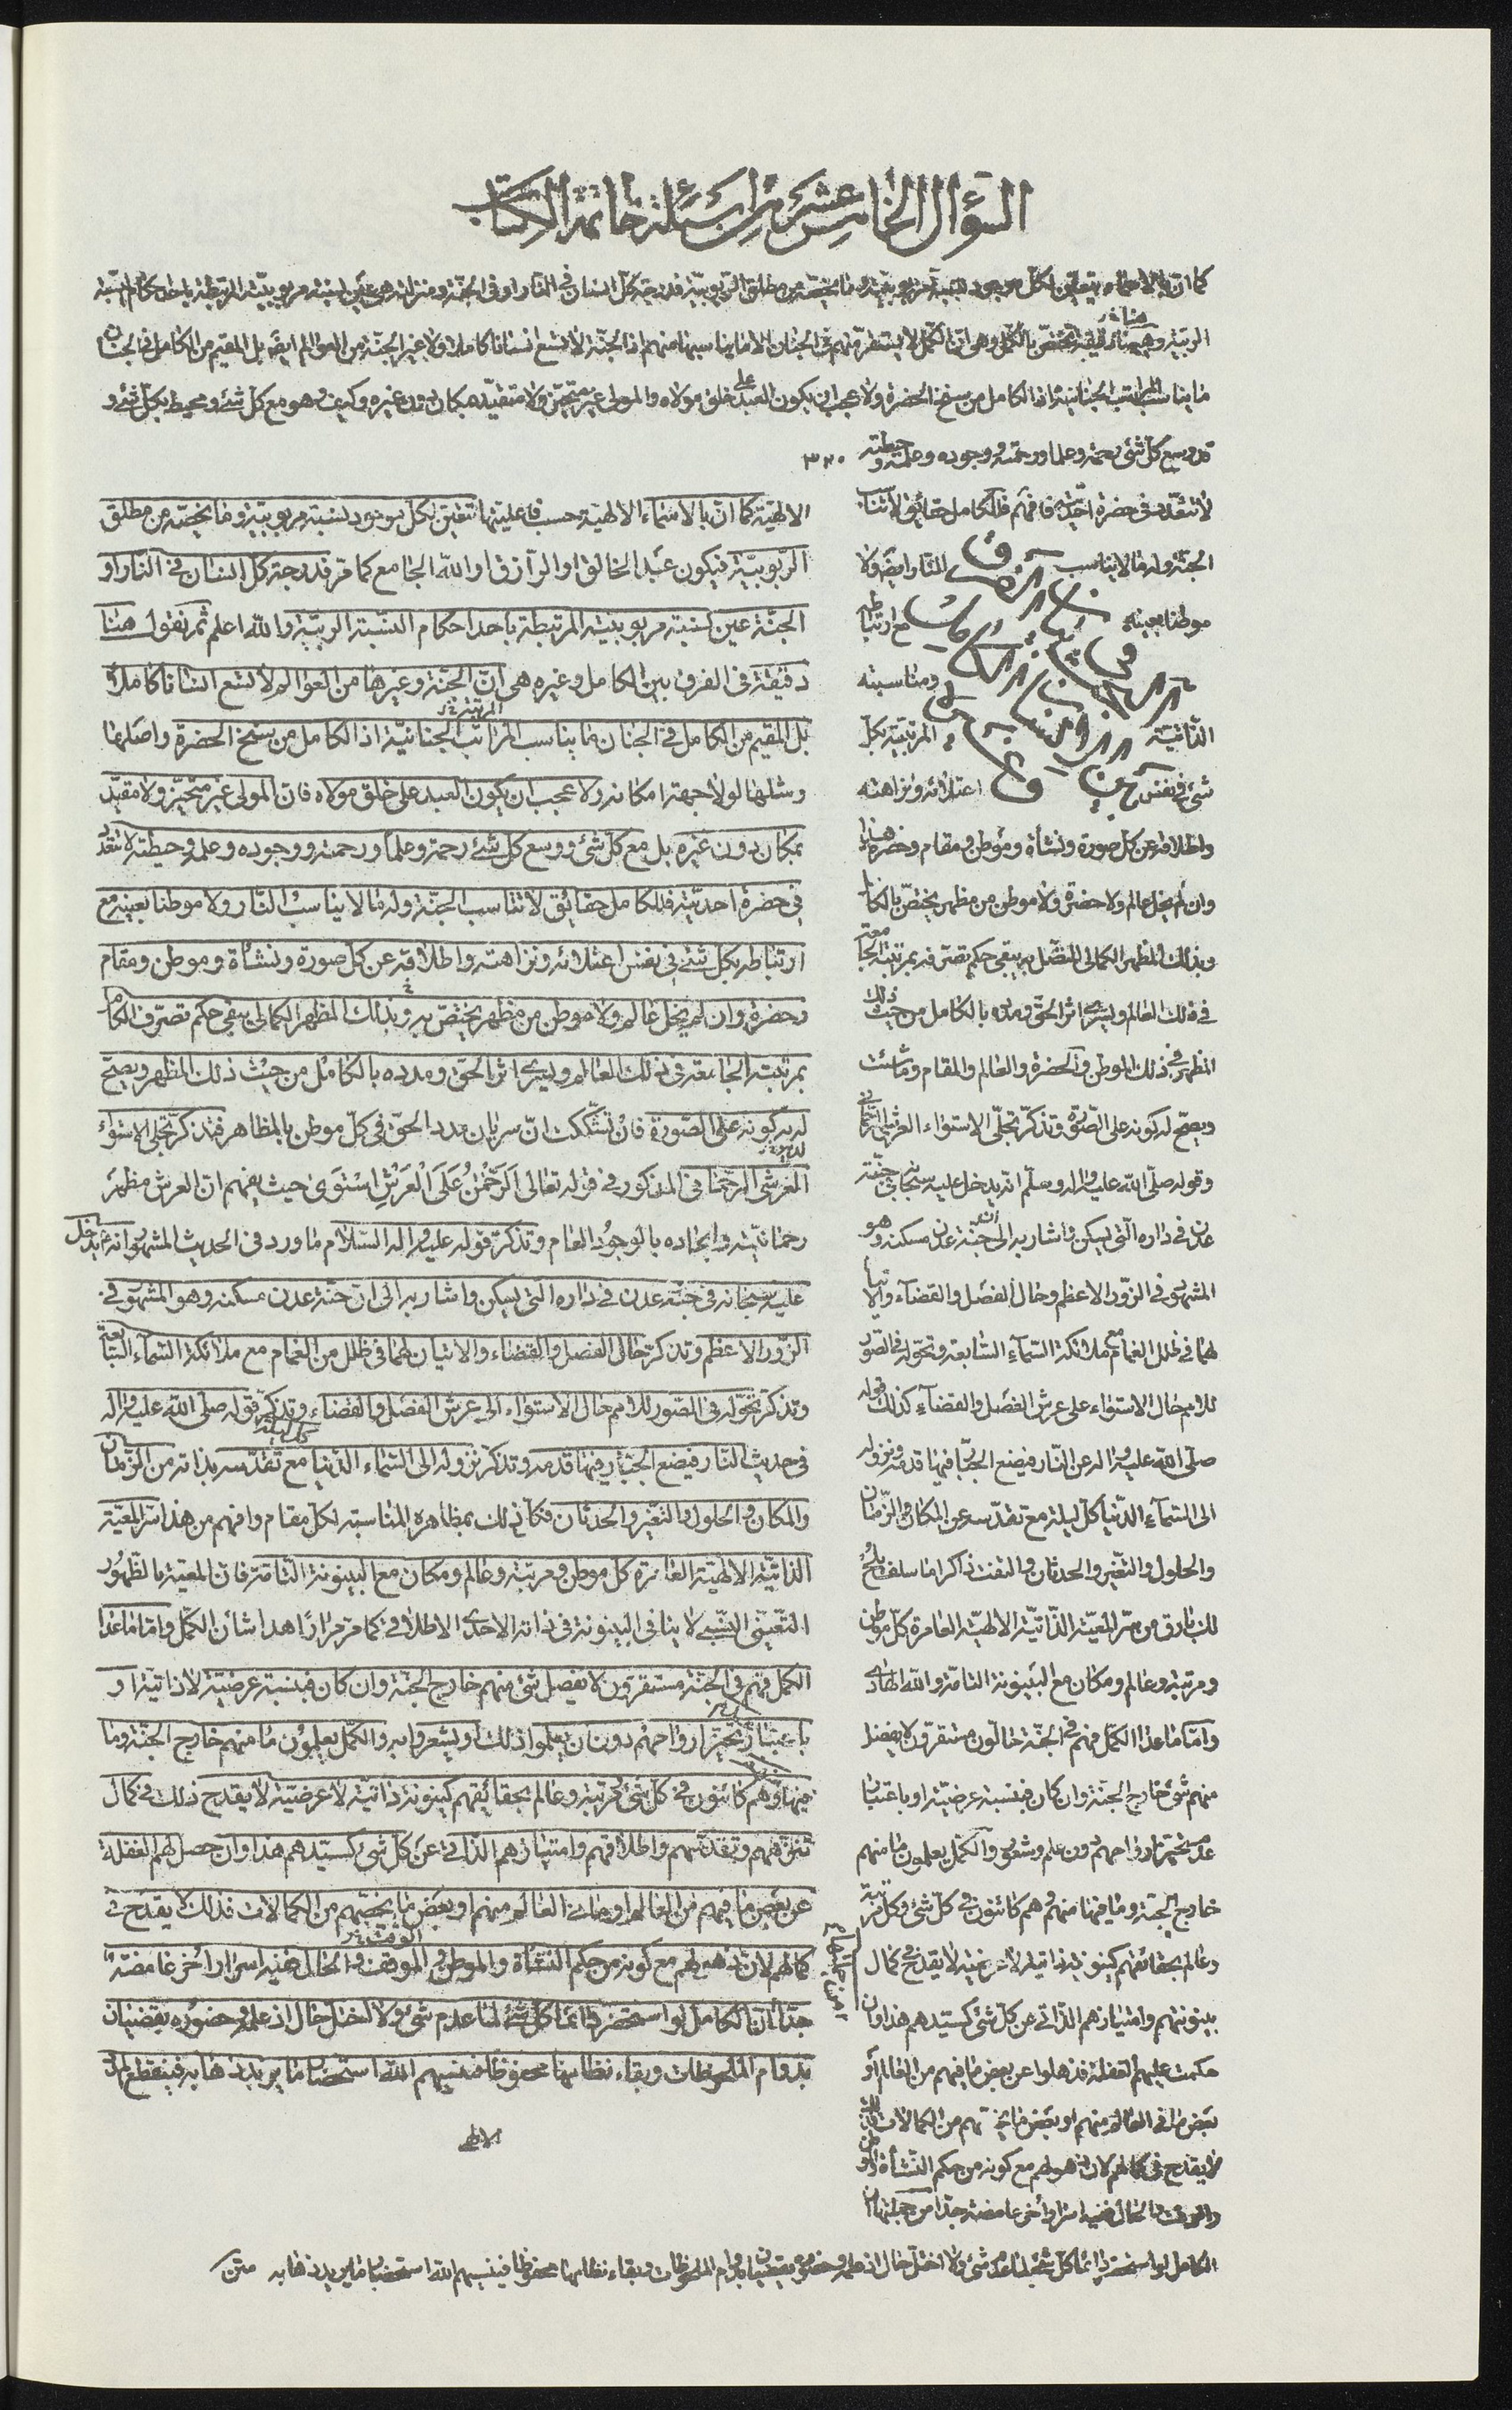 السؤال الخامس عشر من اسئلة خاتمة الكتاب
كما ان بالاسماء يتعين لكل موجود نسبة مربوبيته وما يخصه من مطلق الربوبية فدرجة كل انسان في النار او في الجنة ومنزلته هي عين نسبة مربوبيته المرتبطة باحد احكام النسبة
الربية وهنا دقيقة تختص بالكمل وهى ان الكمل لا يستقر منهم في الجنان الا ما يناسبها منهم اذ الجنة لا تسع انسانا كاملا ولا غير الجنة من العوالم ايضا بل المقيم من الكامل في الجنان
ما يناسب المراتب الجنانية اذ الكامل من سنخ الحضرة ولا عجب ان يكون العبد على خلق مولاه والمولى غير متحيز ولا متقيد بمكان دون غيره وكيف وهو مع كل شئ ومحيط بكل شئ و
قد وسع كل شئ رحمة وعلما ورحمته ووجوده وعلمه وحيطته
لا تتعدد في حضرة احديته فافهم فللكامل حقائق لا تناسب
الجنة وله ما لا يناسب النار ايضا ولا
موطنا بعينه مع ارتباطه
ومناسبته
الذاتية المرتبية بكل
شئ في نفس اعتلائه ونزاهته
واطلاقه عن كل صورة ونشأة وموطن ومقام وحضرة هذا
وان لم يخل عالم ولا حضرة ولا موطن من مظهر يختص بالكامل
وبذلك المظهر الكمالي المتصل به يبقى حكم تصرفه بمرتبته الجامعة
في ذلك العالم ويسرى اثر الحق ومدده بالكامل من حيث ذلك
المظهر في ذلك الموطن والحضرة والعالم والمقام وما شئت
ويصح له كونه على الصورة وتذكر تجلى الاستواء العرشى الرحماني
وقوله صلى الله عليه واله وسلم انه يدخل عليه سبحانه في جنة
عدن في داره التى يسكن واشار به الى ان جنة عدن مسكنه وهو
المشهود في الزور الاعظم وحال الفصل والقضاء والاتيان
لهما في ظلل الغمام مع ملائكة السماء السابعة وتحوله في الصور
للامم حال الاستواء على عرش الفصل والقضاء كذلك قوله
صلى الله عليه واله عن النار فيضع الجبار فيها قدمه ونزوله
الى السماء الدنيا كل ليلة مع تقدسه عن المكان والزمان
والحلول والتغير والحدثان والتفت ذاكرا ما سلف يلح
لك بارق من سر المعية الذاتية الالهية العامرة كل موطن
ومرتبة وعالم ومكان مع البينونة التامة والله الهادى
واما ما عدا الكمل فهم في الجنة حالون مستقرون لا يفضل
منهم شئ خارج الجنة وان كان فبنسبة عرضية او باعتبار
عدم تحيز ارواحهم دون علم وشعور والكمل يعلمون ما منهم
خارج الجنة وما فيها منهم وهم كائنون في كل شئ وكل مرتبة
وعالم بحقائقهم كينونة ذاتية لا عرضية لا يقدح في كمال
بينونتهم وامتيازهم الذاتى عن كل شئ كسيدهم هذا وان
حكمت عليهم الغفلة فذهلوا عن بعض ما فيهم من العالم او
بعض ما في العالم منهم او بعض ما يختص بهم من الكمالات فذلك
لا يقدح في كمالهم لان ذهولهم مع كونه من حكم النشأة والموطن
والوقت والحال ففيه اسرار اخر غامضة جدا من جملتها ان
الكامل لو استحضر دائما كل شئ لما عدم شئ ولا اختل حال اذ علمه وحضوره يقضيان بدوام الملحوظات وبقاء نظامها محفوظا فينسيهم الله استحضار ما يريد ذهابه متن
٣٢٠
الالهية كما ان بالاسماء الالهية حسب فاعليتها تتعين لكل موجود نسبة مربوبية وما يخصه من مطلق
الربوبية فيكون عبد الخالق او الرازق او الله الجامع كما مر فدرجة كل انسان في النار او
الجنة عين نسبة مربوبيته المرتبطة باحد احكام النسبة الربية والله اعلم ثم نقول هنا
دقيقة في الفرق بين الكامل وغيره هى ان الجنة وغيرها من العوالم لا تسع انسانا كاملا
بل المقيم من الكامل في الجنان ما يناسب المراتب الجنانية اذ الكامل من سنخ الحضرة واصلها
ومثلها لولا جهة امكانه ولا عجب ان يكون العبد على خلق مولاه فان المولى غير متحيز ولا مقيد
بمكان دون غيره بل مع كل شئ ووسع كل شئ رحمة وعلما ورحمته ووجوده وعلمه وحيطته لا تتعدد
في حضرة احديته فللكامل حقائق لا تناسب الجنة وله ما لا يناسب النار ولا موطنا بعينه مع
ارتباطه بكل شئ في نفس اعتلائه ونزاهته واطلاقه عن كل صورة ونشأة وموطن ومقام
وحضرة وان لم يخل عالم ولا موطن من مظهر يختص به وبذلك المظهر الكمالي يبقى حكم تصرف الكامل
بمرتبته الجامعة في ذلك العالم ويسرى اثر الحق ومدده بالكامل من حيث ذلك المظهر ويصح
له كونه على الصورة فان تشككت ان سريان مدد الحق في كل موطن بالمظاهر فتذكر تجلى الاستواء
العرشى الرحماني المذكور في قوله تعالى الرحمن على العرش استوى حيث يفهم ان العرش مظهر
رحمانيته وايجاده بالوجود العام وتذكر قوله عليه واله السلام ما ورد في الحديث المشهور انه يدخل
عليه سبحانه في جنة عدن في داره التى يسكن واشار به الى ان جنة عدن مسكنه وهو المشهود في
الزور الاعظم وتذكر حال الفصل والقضاء والاتيان لهما في ظلل من الغمام مع ملائكة السماء السابعة
وتذكر تحوله في الصور للامم حال الاستواء الى عرش الفصل والقضاء وتذكر قوله صلى الله عليه واله
في حديث النار فيضع الجبار فيها قدمه وتذكر نزوله الى السماء الدنيا مع تقدسه بذاته من الزمان
والمكان والحلول والتغير والحدثان فكل ذلك بمظاهره المناسبة لكل مقام وافهم من هذا سر المعية
الذاتية الالهية العامرة كل موطن ومرتبة وعالم ومكان مع البينونة التامة فان المعية بالظهور
التعينى النسبى لا ينافى البينونة في ذاته الاحدى الاطلاقى كما مر مرارا هذا شأن الكمل واما ما عدا
الكمل فهم في الجنة مستقرون لا يفصل شئ منهم خارج الجنة وان كان فبنسبة عرضية لا ذاتية او
باعتبار تحيز ارواحهم دون ان يعلموا ذلك او يشعروا به والكمل يعلمون ما منهم خارج الجنة وما
فيها وهم كائنون في كل شئ ومرتبة وعالم بحقائقهم كينونة ذاتية لا عرضية لا يقدح ذلك في كمال
تنزههم وتقدسهم واطلاقهم وامتيازهم الذاتى عن كل شئ كسيدهم هذا وان حصل لهم الغفلة
عن بعض ما فيهم من العالم او ما في العالم منهم او بعض ما يخصهم من الكمالات فذلك لا يقدح في
كمالهم لان ذهولهم مع كونه من حكم النشأة والموطن والموقف والحال ففيه اسرار اخر غامضة
جدا ان الكامل لو استحضر دائما كل شئ لما عدم شئ ولا اختل حال اذ علمه وحضوره يقضيان
بدوام الملحوظات وبقاء نظامها محفوظا فينسيهم الله استحضار ما يريد ذهابه فينقطع المدد
الالهى